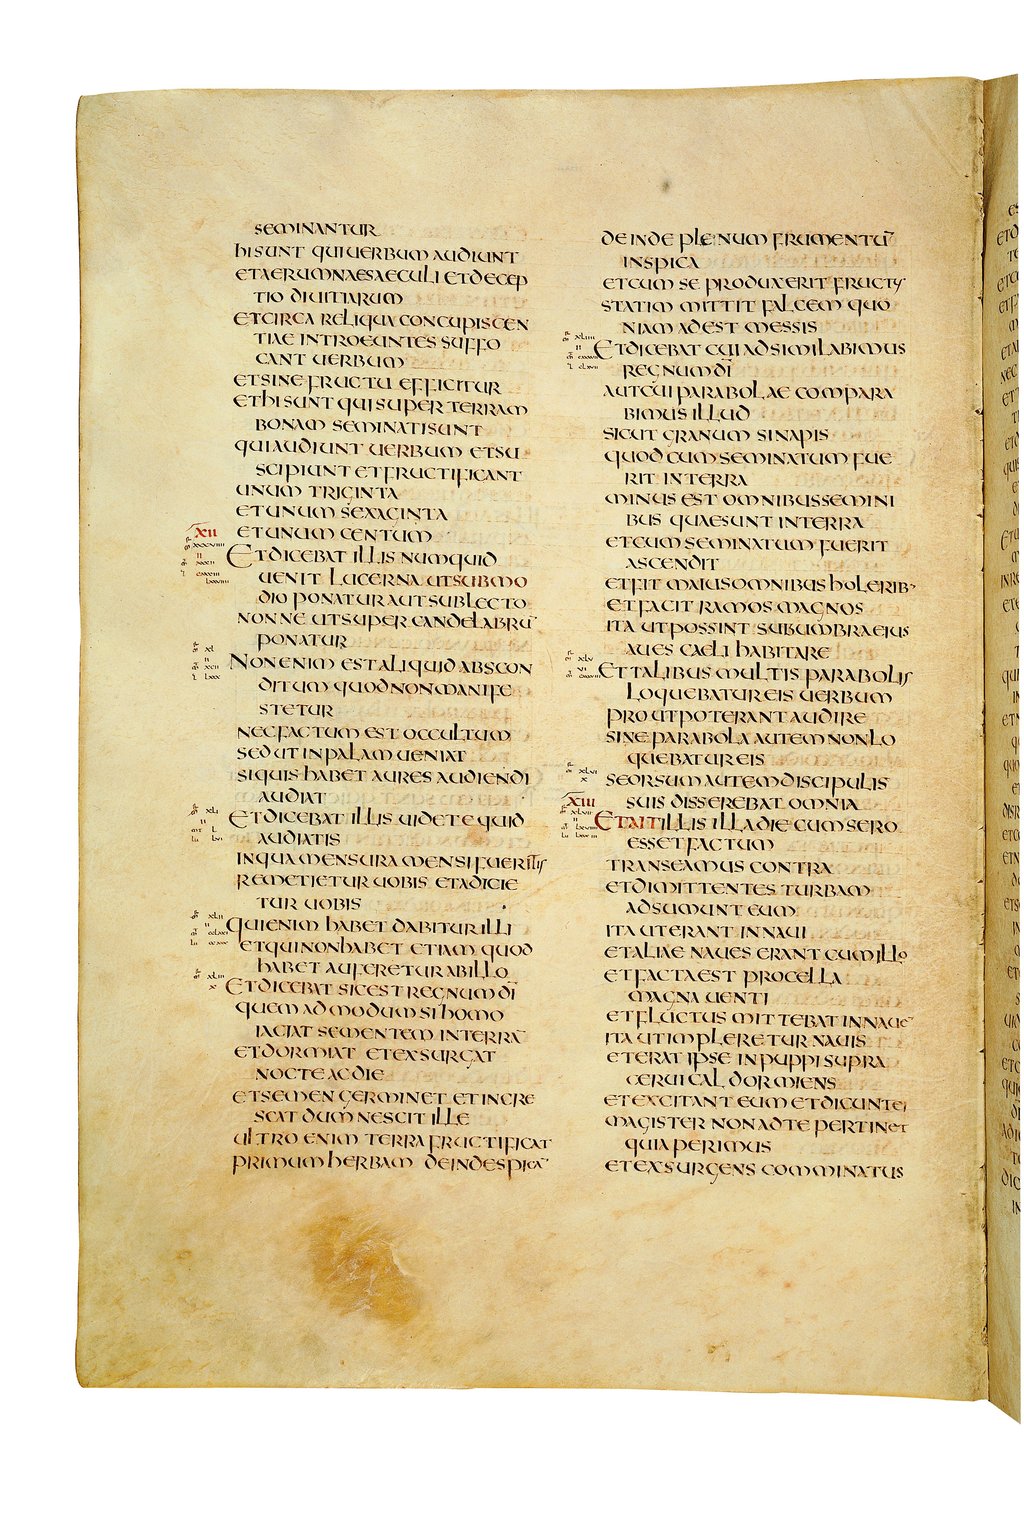 SEMINANTUR
HISUNT QUIUERBUM AUDIUNT
ETAERUMNAESAECULI ETDECEP
TIO DIUITIARUM
ETCIRCA RELIQUA CONCUPISCEN
TIAE INTROEUNTES SUFFO
CANT UERBUM
ETSINE FRUCTU EFFICITUR
ETHISUNT QUISUPER TERRAM
BONAM SEMINATISUNT
QUIAUDIUNT UERBUM ETSU
SCIPIUNT ETFRUCTIFICANT
UNUM TRIGINTA
ETUNUM SEXAGINTA
XII
ETUNUM CENTUM
ETDICEBAT ILLIS NUMQUID
UENIT LUCERNA UTSUBMO
DIO PONATUR AUTSUBLECTO
NONNE UTSUPER CANDELABRŪ
PONATUR
NONENIM ESTALIQUIDABSCON
DITUM QUODNONMANIFE
STETUR
NECFACTUM EST OCCULTUM
SEDUT INPALAM UENIAT
SIQUIS HABET AURES AUDIENDI
AUDIAT
ETDICEBAT ILLIS UIDETEQUID
AUDIATIS
INQUAMENSURA MENSIFUERITIS
REMETIETUR UOBIS ETADICIE
TUR UOBIS
QUIENIM HABET DABITURILLI
ETQUINONHABET ETIAM QUOD
HABET AUFERETURABILLO
ETDICEBAT SICEST REGNUM DĪ
QUEMADMODUM SIHOMO
IACIAT SEMENTEM INTERRĀ
ETDORMIAT ETEXSURGAT
NOCTE ACDIE
ETSEMEN GERMINET ETINCRE
SCAT DUM NESCIT ILLE
ULTRO ENIM TERRA FRUCTIFICAT
PRIMUM HERBAM DEINDESPICĀ
DEINDE PLENUM FRUMENTŪ
INSPICA
ETCUM SE PRODUXERIT FRUCTUS
STATIM MITTIT FALCEM QUO
NIAM ADEST MESSIS
ETDICEBAT CUI ADSIMILABIMUS
REGNUM DĪ
AUTCUI PARABOLAE COMPARA
BIMUS ILLUD
SICUT GRANUM SINAPIS
QUOD CUMSEMINATUM FUE
RIT INTERRA
MINUS EST OMNIBUSSEMINI
BUS QUAESUNT INTERRA
ETCUM SEMINATUM FUERIT
ASCENDIT
ETFIT MAIUSOMNIBUS HOLERIB·
ETFACIT RAMOS MAGNOS
ITA UTPOSSINT SUBUMBRAEIUS
AUES CAELI HABITARE
ETTALIBUS MULTIS PARABOLIS
LOQUEBATUREIS UERBUM
PROUTPOTERANT AUDIRE
SINE PARABOLA AUTEM NONLO
QUEBATUREIS
SEORSUMAUTEMDISCIPULIS
XIII
SUIS DISSEREBAT OMNIA
ETAITILLIS ILLADIE CUMSERO
ESSETFACTUM
TRANSEAMUS CONTRA
ETDIMITTENTES TURBAM
ADSUMUNT EUM
ITA UTERANT INNAUI
ETALIAE NAUES ERANT CUMILLO
ETFACTAEST PROCELLA
MAGNA UENTI
ETFLUCTUS MITTEBAT INNAUĒ
ITAUTIMPLERETUR NAUIS
ETERAT IPSE INPUPPI SUPRA
CERUICAL DORMIENS
ETEXCITANT EUM ETDICUNTEI
MAGISTER NONADTE PERTINET
QUIAPERIMUS
ETEXSURGENS COMMINATUS